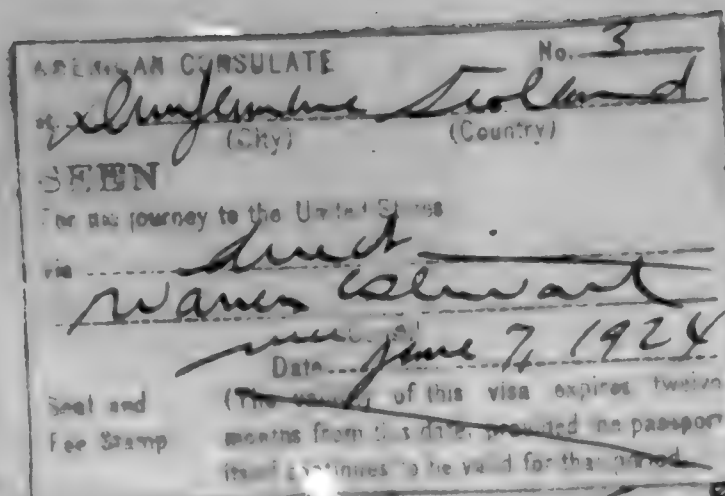 AMERICAN CONSULATE No. 3
at Dunfermline Scotland
(City) (Country)
SEEN
For the journey to the United States
via direct
Stewart
Date June 7, 1924
Seal and
Fee Stamp
(The validity of this visa expires twelve
months from this date, provided the passport
itself continues to be valid for that period